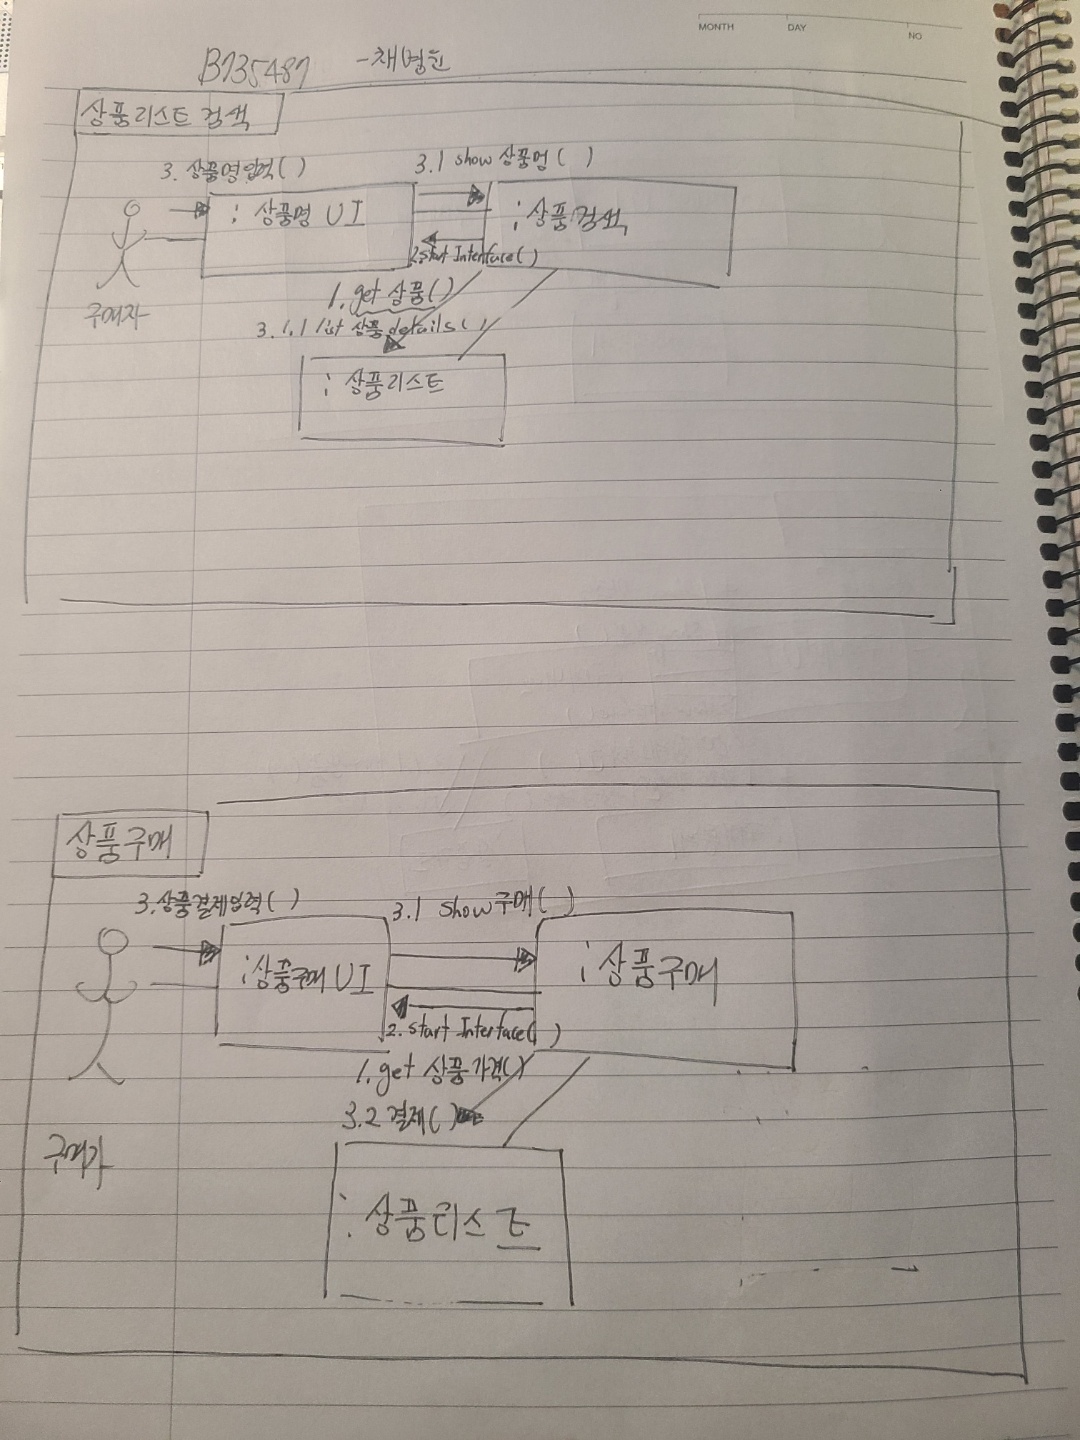 MONTH DAY NO
B735487 -채병훈
상품리스트 검색
3. 상품명입력( )
3.1 show 상품명( )
: 상품명 UI
: 상품검색
2. start Interface( )
구매자
1. get 상품( )
3.1.1 list 상품 details( )
: 상품리스트
상품구매
3. 상품결제입력( )
3.1 show 구매( )
: 상품구매 UI
: 상품구매
2. start Interface( )
1. get 상품가격( )
3.2 결제( )
구매자
: 상품리스트